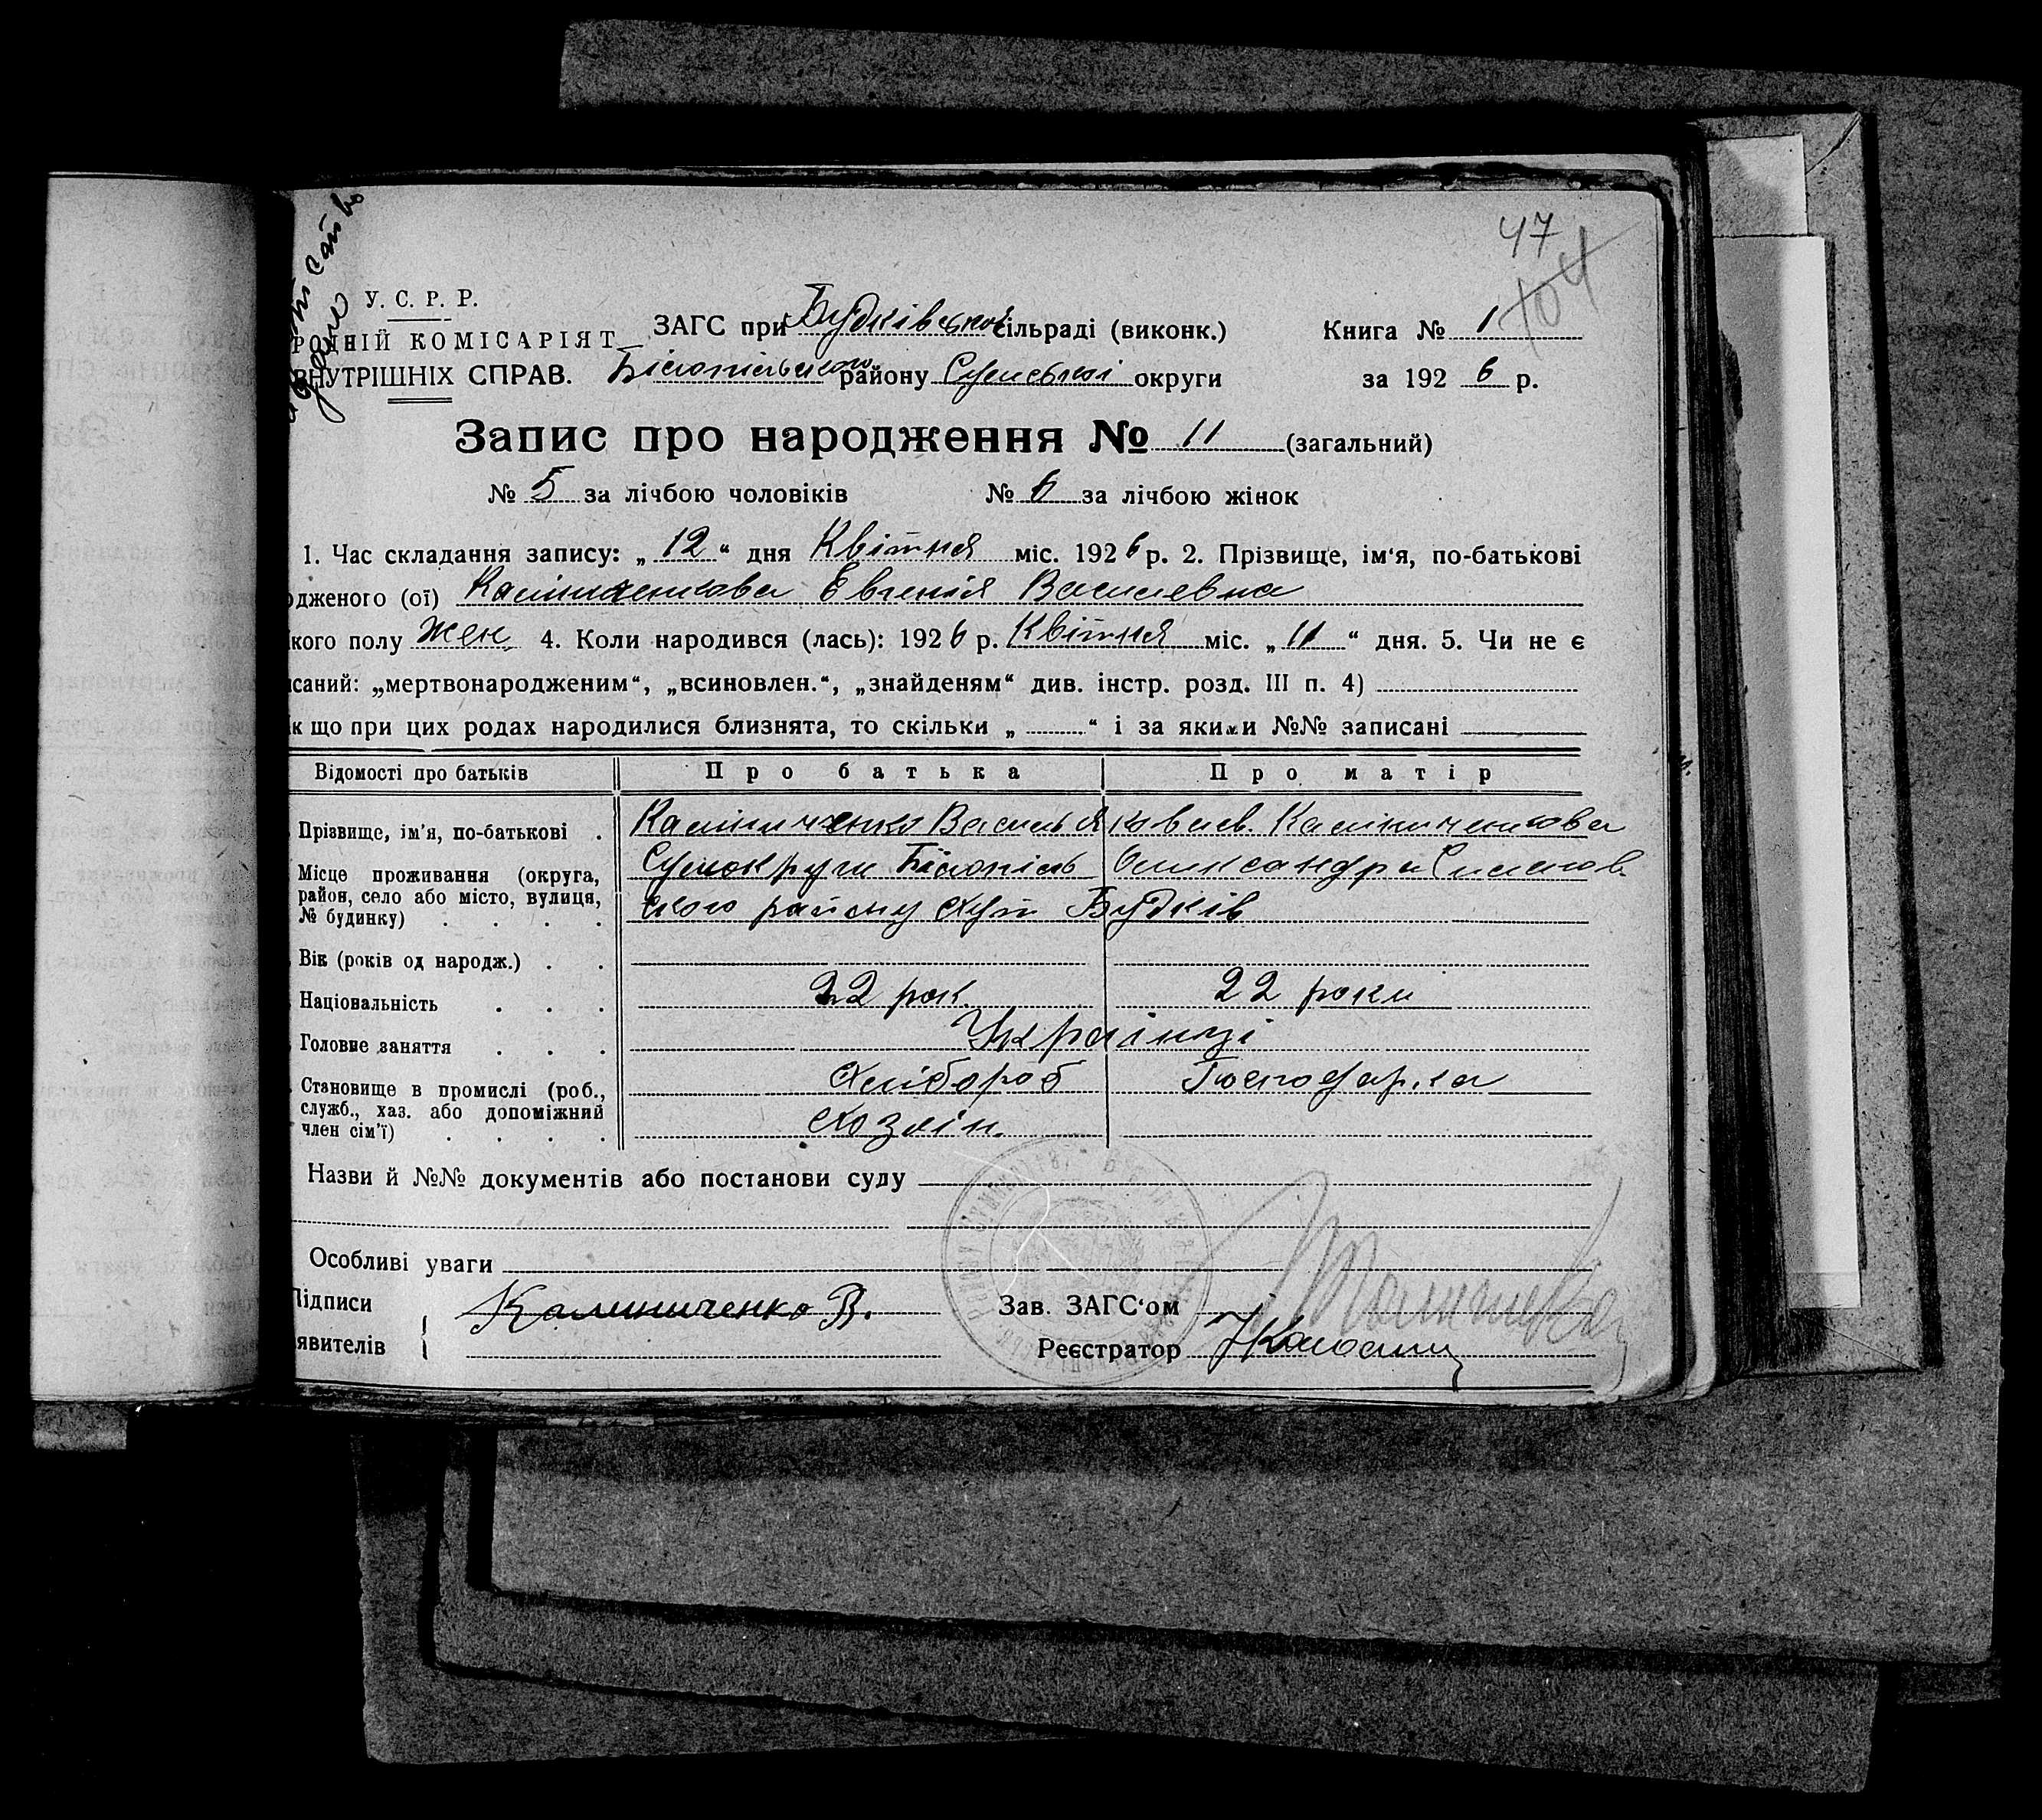 47
104
У. С. Р. Р.
РОДНІЙ КОМІСАРІЯТ
ВНУТРІШНІХ СПРАВ.
ЗАГС при Будківській сільраді (виконк.)
Білопільського району Сумської округи
Книга № 1
за 1926 р.
Запис про народження № 11 (загальний)
№ 5 за лічбою чоловіків № 6 за лічбою жінок
1. Час складання запису: „12“ дня Квітня міс. 1926 р. 2. Прізвище, ім‘я, по-батькові
одженого (ої) Калиниченкова Евгенія Василевна
кого полу Жен. 4. Коли народився (лась): 1926 р. Квітня міс. „11“ дня. 5. Чи не є
исаний: „мертвонародженим“, „всиновлен.“, „знайденям“ див. інстр. розд. III п. 4)
к що при цих родах народилися близнята, то скільки „ “ і за якими №№ записані
Відомості про батьків Про батька Про матір
Прізвище, ім'я, по-батькові . Калиниченко Василь Яковлев. Калиниченкова
Місце проживання (округа, район, село або місто, вулиця, № будинку) . . . . Сумокруги Білопіль Олександра
ського району Хут Будків
Вік (років од народж.) . .
Національність . . . 22 рок. 22 роки
Головне заняття . . . Українці
Становище в промислі (роб., служб., хаз. або допоміжний член сім'ї) . . . . Хлібороб Господарка
Хозяїн.
Назви й №№ документів або постанови суду
Особливі уваги
Підписи
явителів
Калиниченко В.
Зав. ЗАГС‘ом
Реєстратор